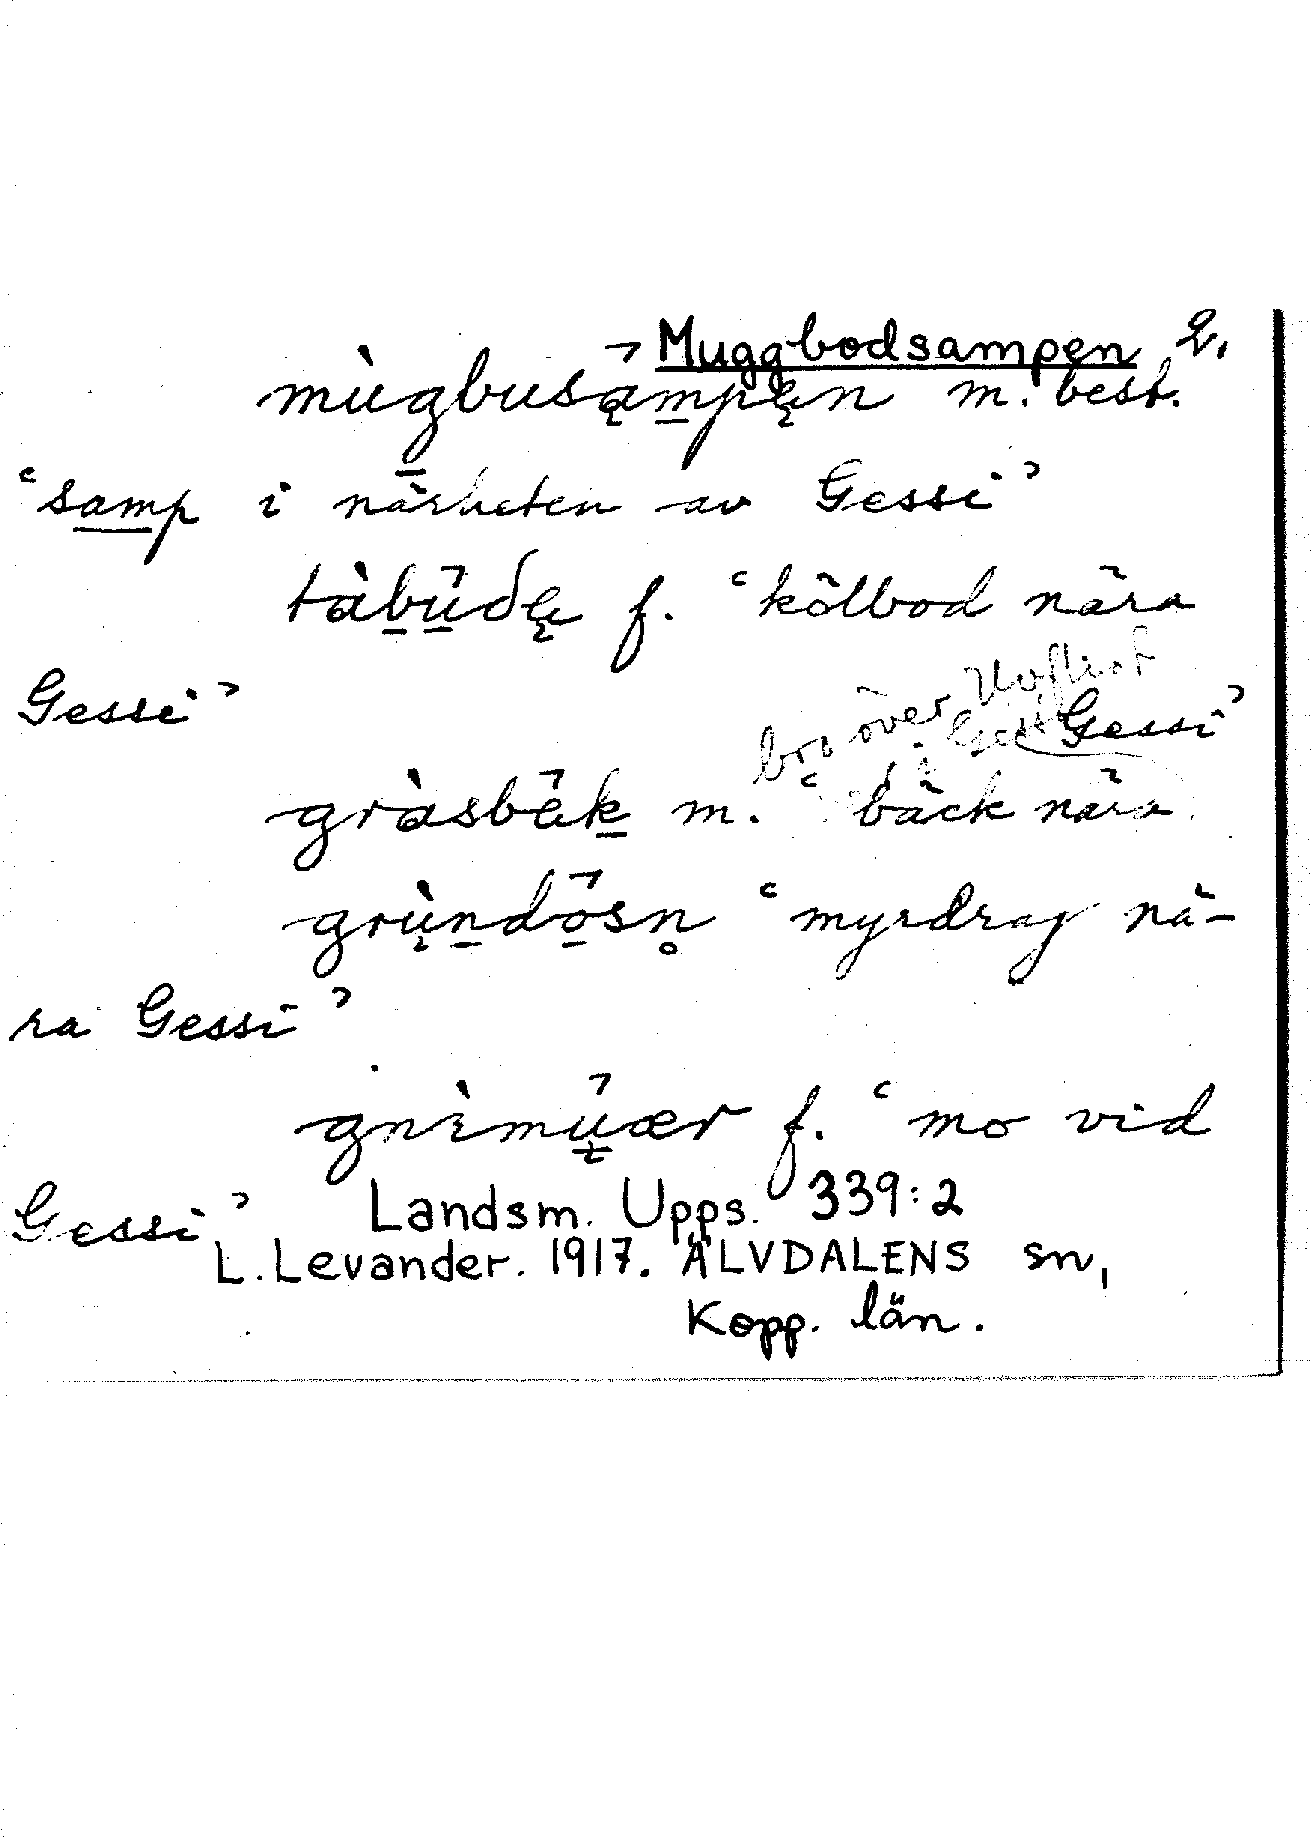 Muggbodsampen 2.
mùgbusampen m. best.
‘samp i närheten av Gessi’
tàbūde f. ‘kölbod nära
Gessi’
bro över
Gessi’
gràsbēk m. ‘bäck nära
grùndȫsn̥ ‘myrdrag nä-
ra Gessi’
gnimuær f. ‘mo vid
Gessi’ Landsm. Upps. 339:2
L. Levander. 1917. ÄLVDALENS sn,
Kopp. län.